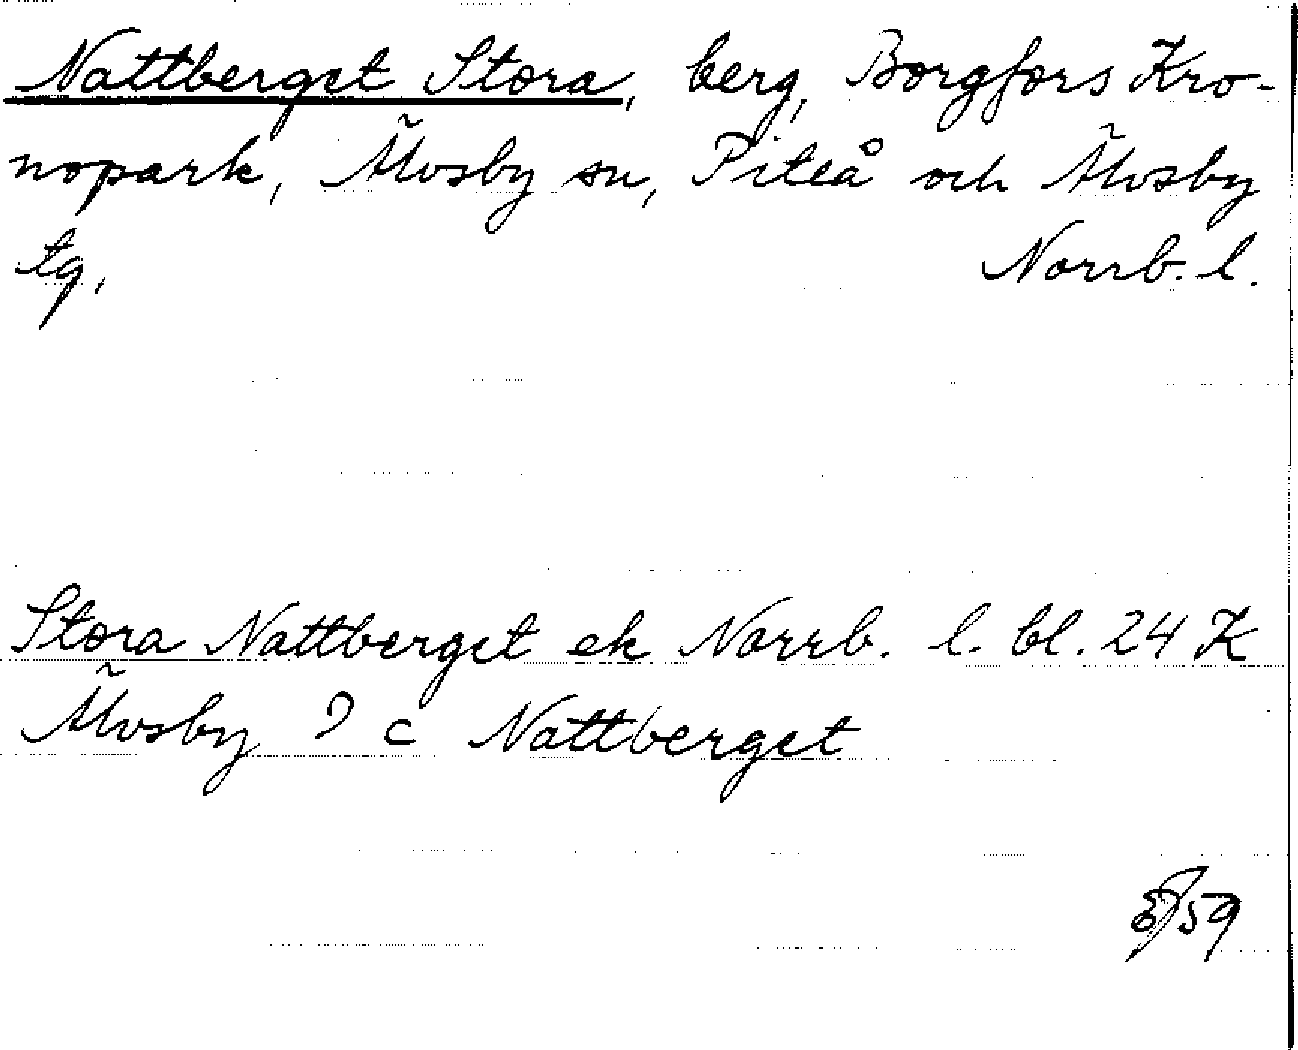 Nattberget Stora, berg, Borgfors Kro-
nopark, Älvsby sn, Piteå och Älvsby
tg, Norrb. l.
Stora Nattberget ek Norrb. l. bl. 24 K
Älvsby 9 c Nattberget
59